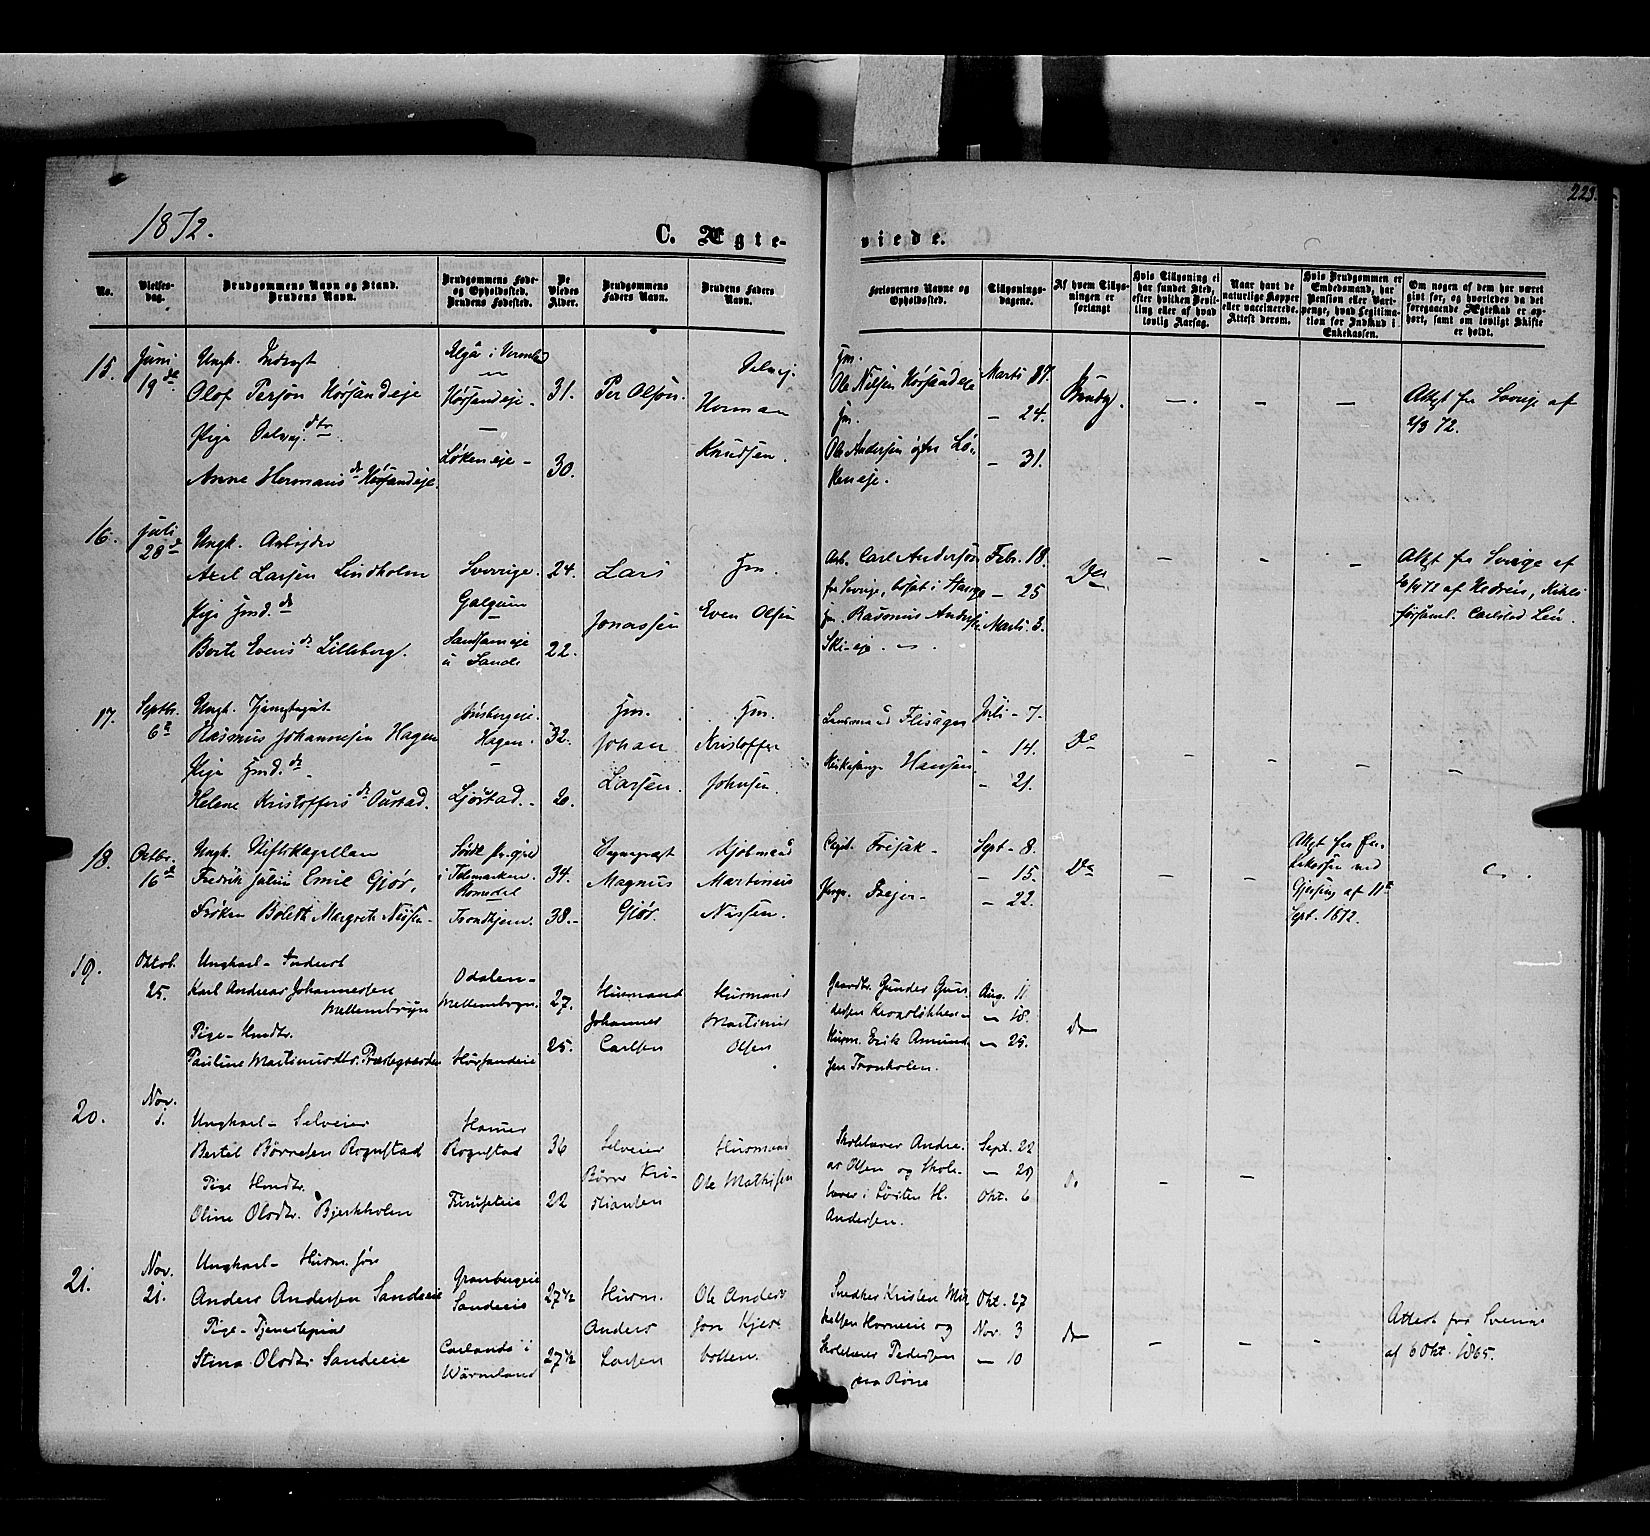 223.
1872.
C. Ægte-
viede.
No.
Vielses-
dag.
Brudgommens Navn og Stand.
Brudens Navn.
Brudgommens Føde-
og Opholdssted.
Brudens Fødested.
De
Viedes
Alder.
Brudgommens
Faders Navn.
Brudens Faders
Navn.
Forlovernes Navne og
Opholdssted.
Tillysnings-
dagene.
Af hvem Tillys-
ningen er
forlangt
Hvis Tillysning ei
har fundet Sted,
efter hvilken Bevil-
ling eller af hvad
lovlig Aarsag.
Naar havt de
naturlige Kopper
eller vaccinerede.
Attest derom.
Hvis Brudgommen er
Embedsmand, har
Pension eller Vart-
penge, hvad Legitima-
tion for Indskud i
Enkekassen.
Om nogen af dem har været
gift før, og hvorledes da det
foregaaende Ægteskab er op-
hørt, samt om lovligt Skifte
er holdt.
15.
Juni
19 de
Ungk. Inderst
Olof Persøn Hørsandeje
Pige Selvej. dtr
Anne Hermans dr Hørsandeje.
Algå i Vermland
Hørsandeje -
Løkeneje -
31.
30.
Per Olson.
Selvej.
Herman
Knudsen.
Gm.
Ole Nilsen Hørsandeje
Gm.
Ole Andersen Lø-
keneje.
Marts 17.
- 24.
- 31.
Brudg.
Attest fra Sverige af
2/3 72.
16.
Juli
28 de
Ungk. Arbejder
Axel Larsen Lindholm
Pige Hmd. dr
Berte Evens dr Lilleberg.
Sverrige.
Galgum
Sandsameje
u Sande
24.
22.
Lars
Jonassen
Hm.
Even Olsen
Arb. Carl Anderson
fra Sverige, bosat i Stange
Hm. Rasmus Anders
Ski-eje.
Febr. 18.
- 25
Marts 3.
Do
Attest fra Sverige af
af Carlstad Län.
17.
Septbr.
6 te
Ungk. Tjenestegut
Rasmus Johannesen Hagen
Pige Hmd. dr
Helene Kristoffers dr Oustad.
Jønsbergeje.
Hagen.
Ljøstad. -
32.
20.
Hm.
Johan
Larsen.
Hm.
Kristoffer
Johnsen.
Lensmand Flisager
Kirkesanger Hansen
Juli - 7.
- 14.
- 21.
Do
18.
Octbr.
16 de
Ungk. Stiftskapellan
Fredrik Julius Emil Gjør,
Frøken Boleth Margrete Nissen -
i Telemarken.
Romedal
Trondhjem.
34.
38. -
Sogneprest
Magnus
Gjør.
Kjøbmand
Martinus
Nissen.
Capt. Frisak -
Prop. Faeger -
Sept - 8.
- 15.
- 22.
Do
Attest fra En-
kekassen ved
af 11te
Sept. 1872.
19.
Oktob.
25.
Ungkarl - Inderst
Karl Andreas Johannessen
Mellembryn
Pige - Hmdtr.
Pauline Martinusdtr. Præstegaarden
Odalen -
Mellembryn.
Hørsandeie
27.
25.
Husmand
Johannes
Carlsen
Husmand
Martinus
Olsen
Gaardbr. Gunder Gun-
dersen Kronsløkken -
Husm. Erik Amund-
sen Tronholen.
Aug. 11
- 18.
- 25.
do
20.
Nov.
1.
Ungkarl - Selveier
Bertel Børresen Rognstad
Pige Hmdtr.
Oline Olsdtr. Bjerkholen
Hamar
Rognstad
Finseteie
36
22
Selveier
Børre Kri-
stiansen
Husmand
Ole Mathisen
Skolelærer Andre-
as Olsen og Skole-
lærer i Løiten H.
Andersen.
Sept. 22
- 29
Okt. 6
do
21.
Nov.
21.
Ungkarl - Husm. søn
Anders Andersen Sandeeie
Pige - Tjenestepige
Stina Olsdtr. Sandeeie
Granbergeie
Sandeeie
Carlanda i
Wärmland
27 1/2
27 1/2
Husm.
Anders
Larsen
Ole Ander-
sen Kjer-
bollen.
Snedker Kristen Mik-
kelsen Horneeie og
Skolelærer Pedersen
paa Røne
Okt. 27
Nov. 3
- 10
do
Attest fra Sverige
af 6 Okt. 1865.